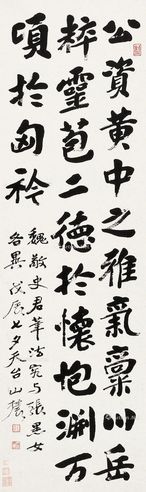 公資黃中之雅氣稟川岳
粹靈苞二德於懷抱淵万
頃於匈衿
魏敬史君筆法究与張黑女
各異戊辰七夕天台山農